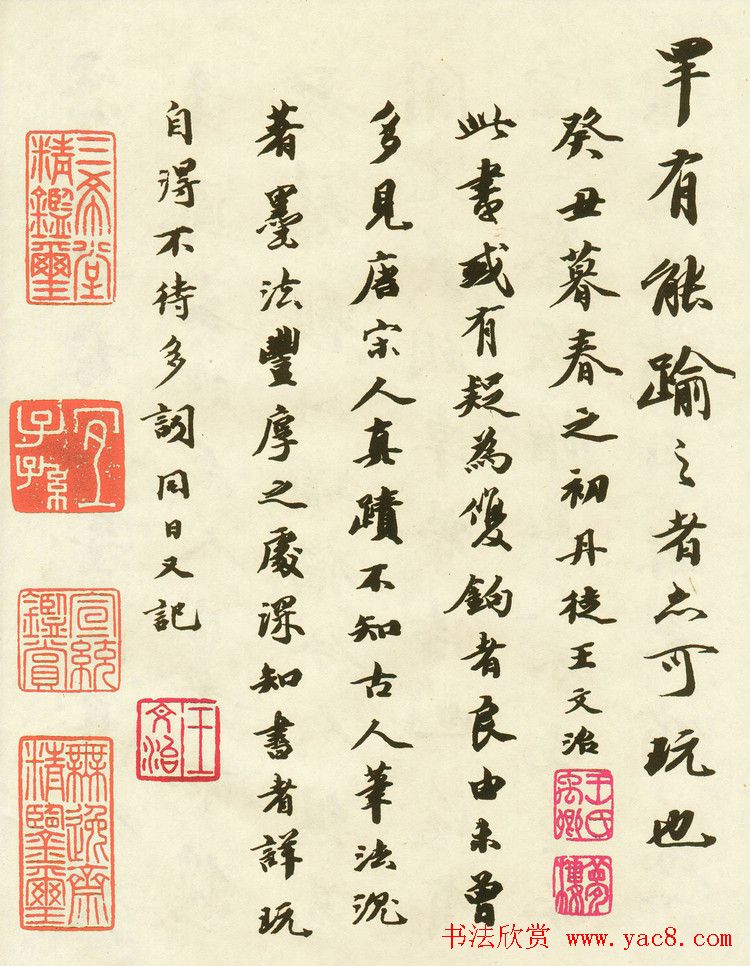 罕有能踰之者亦可玩也
癸丑暮春之初丹徒王文治
王氏禹卿
夢樓
此書或有疑為雙鉤者良由未曾
多見唐宋人真蹟不知古人筆法沉
著墨法豐厚之處深知書者詳玩
自得不待多詞同日又記
王文治
三希堂精鑑璽
宜子孫
宣統鑑賞
無逸齋精鑒璽
书法欣赏 www.yac8.com